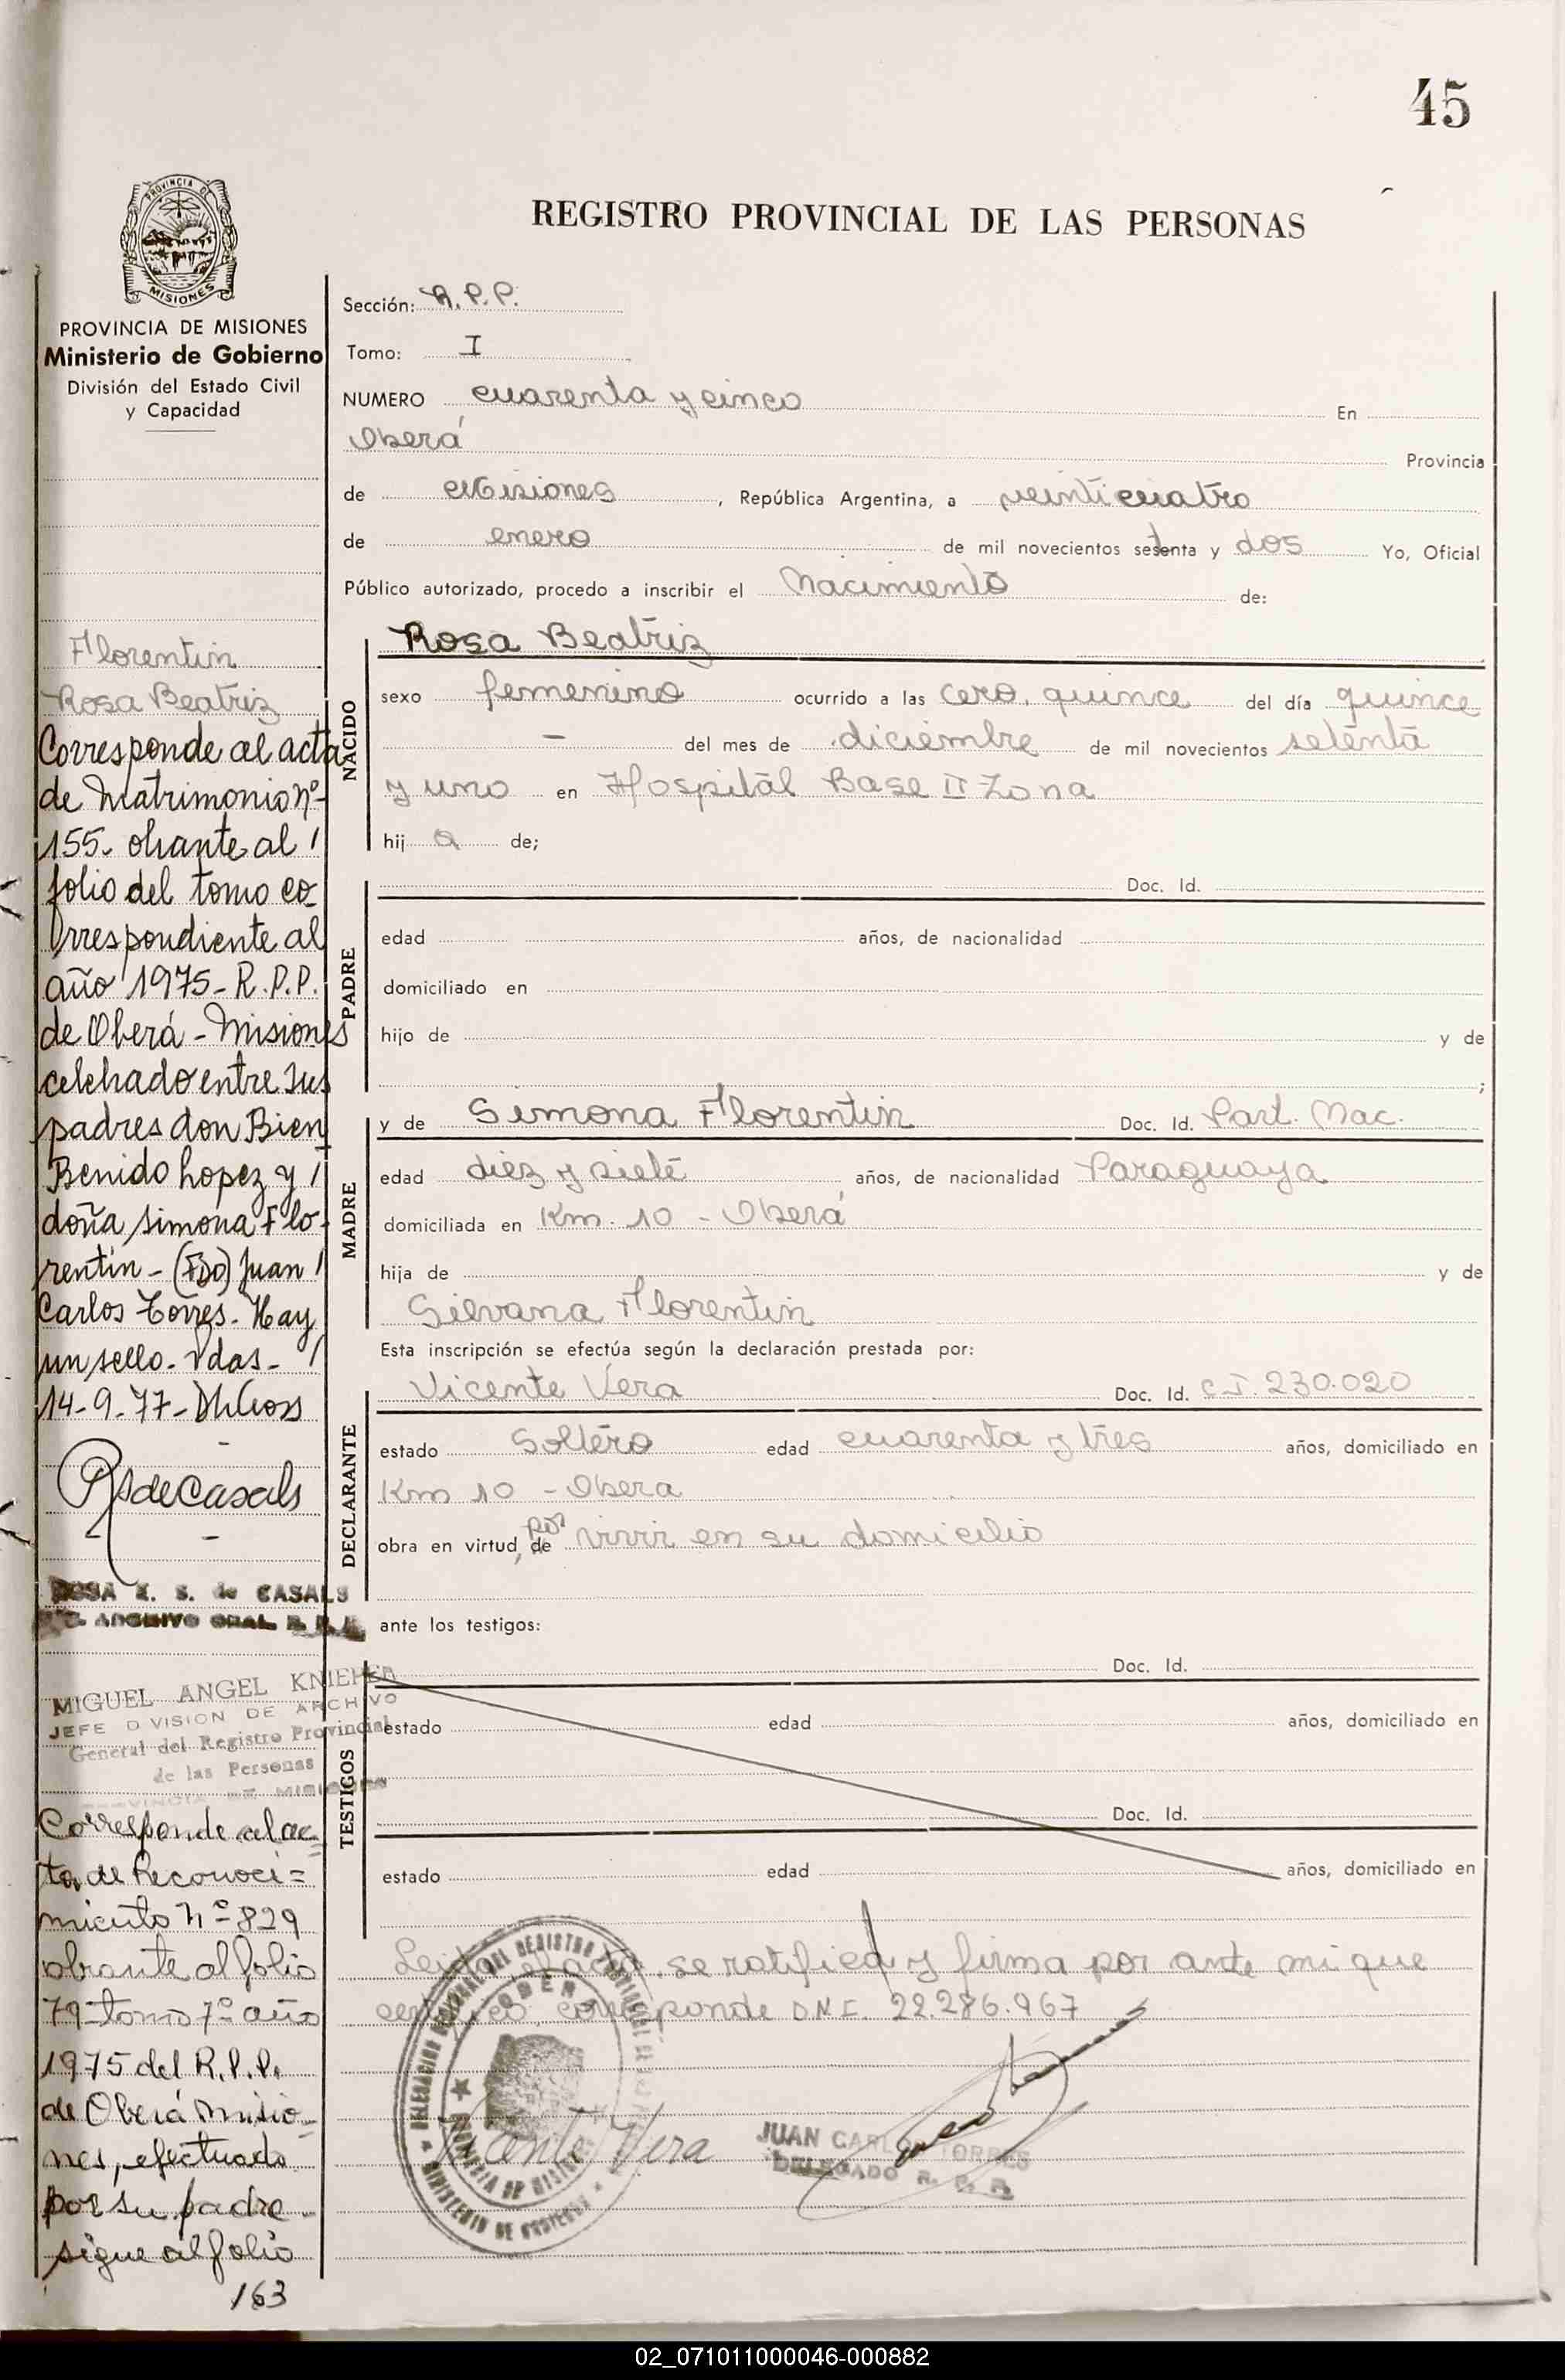 45
REGISTRO PROVINCIAL DE LAS PERSONAS
PROVINCIA DE MISIONES
PROVINCIA DE MISIONES
Ministerio de Gobierno
División del Estado Civil
y Capacidad
Florentin
Rosa Beatriz
Corresponde al acta
de Matrimonio nº
155. obrante al /
folio del tomo co-
rrespondiente al
año 1975 - R.P.P.
de Oberá - Misiones
celebrado entre sus
padres don Bien
Benido Lopez y /
doña Simona Flo-
rentin - (FDO) Juan /
Carlos Torres. Hay
un sello - Pdas - /
14-9-77-
RSdeCasals
ROSA E. S. de CASALS
ARCHIVO GRAL. R. P. P.
MIGUEL ANGEL KNIEPER
JEFE DIVISION DE ARCHIVO
General del Registro Provincial
de las Personas
PROVINCIA DE MISIONES
Corresponde al ac=
ta de Reconoci=
miento nº 829
obrante al folio
79 tomo 7º año
1975 del R.P.P.
de Oberá Misio-
nes, efectuado
por su padre -
sigue al folio
163
Sección: R.P.P.
Tomo: I
NUMERO cuarenta y cinco En
Oberá Provincia
de Misiones, República Argentina, a veinticuatro
de enero de mil novecientos setenta y dos Yo, Oficial
Público autorizado, procedo a inscribir el Nacimiento de:
NACIDO
Rosa Beatriz
sexo femenino ocurrido a las cero, quince del día quince
- del mes de diciembre de mil novecientos setenta
y uno en Hospital Base II Zona
hij a de;
PADRE
Doc. Id.
edad años, de nacionalidad
domiciliado en
hijo de y de
;
MADRE
y de Simona Florentin Doc. Id. Part. Nac.
edad diez y siete años, de nacionalidad Paraguaya
domiciliada en Km. 10 - Oberá
hija de y de
Silvana Florentin
Esta inscripción se efectúa según la declaración prestada por:
DECLARANTE
Vicente Vera Doc. Id. C.I. 230.020
estado Soltero edad cuarenta y tres años, domiciliado en
Km 10 - Obera
obra en virtud, de por vivir en su domicilio
ante los testigos:
TESTIGOS
Doc. Id.
estado edad años, domiciliado en
Doc. Id.
estado edad años, domiciliado en
Leida el acta, se ratifica y firma por ante mi que
certifico, corresponde D.N.I. 22.286.967
Vicente Vera
JUAN CARLOS TORRES
DELEGADO R. P. P.
02_071011000046-000882